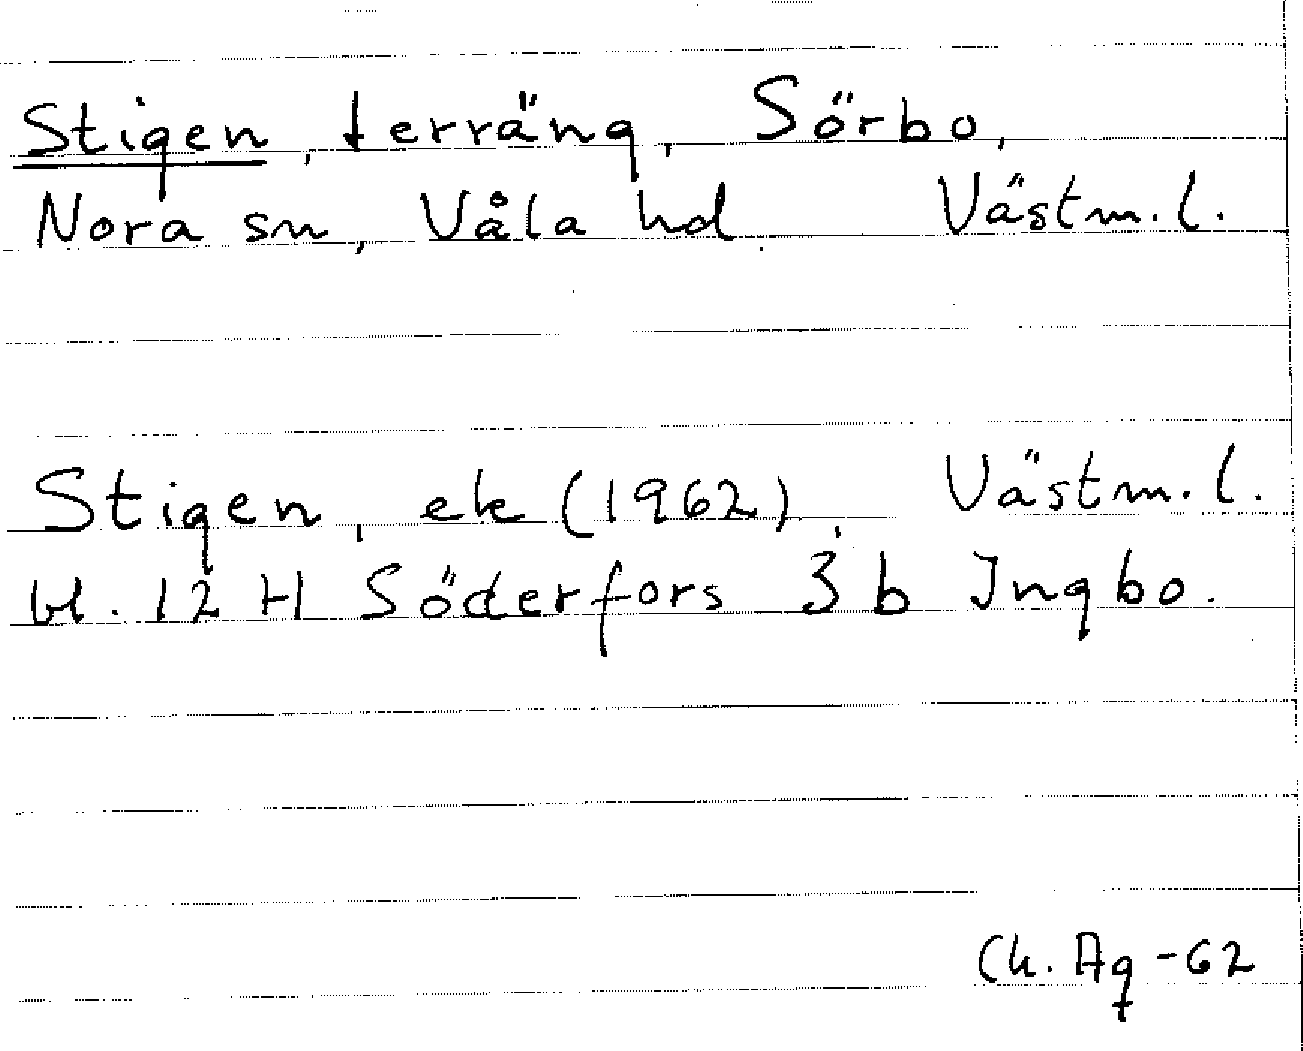 Stigen, terräng, Sörbo,
Nora sn, Våla hd. Västm. l.
Stigen, ek (1962), Västm. l.
bl. 12 H Söderfors 3 b Ingbo.
Ch. Ag -62